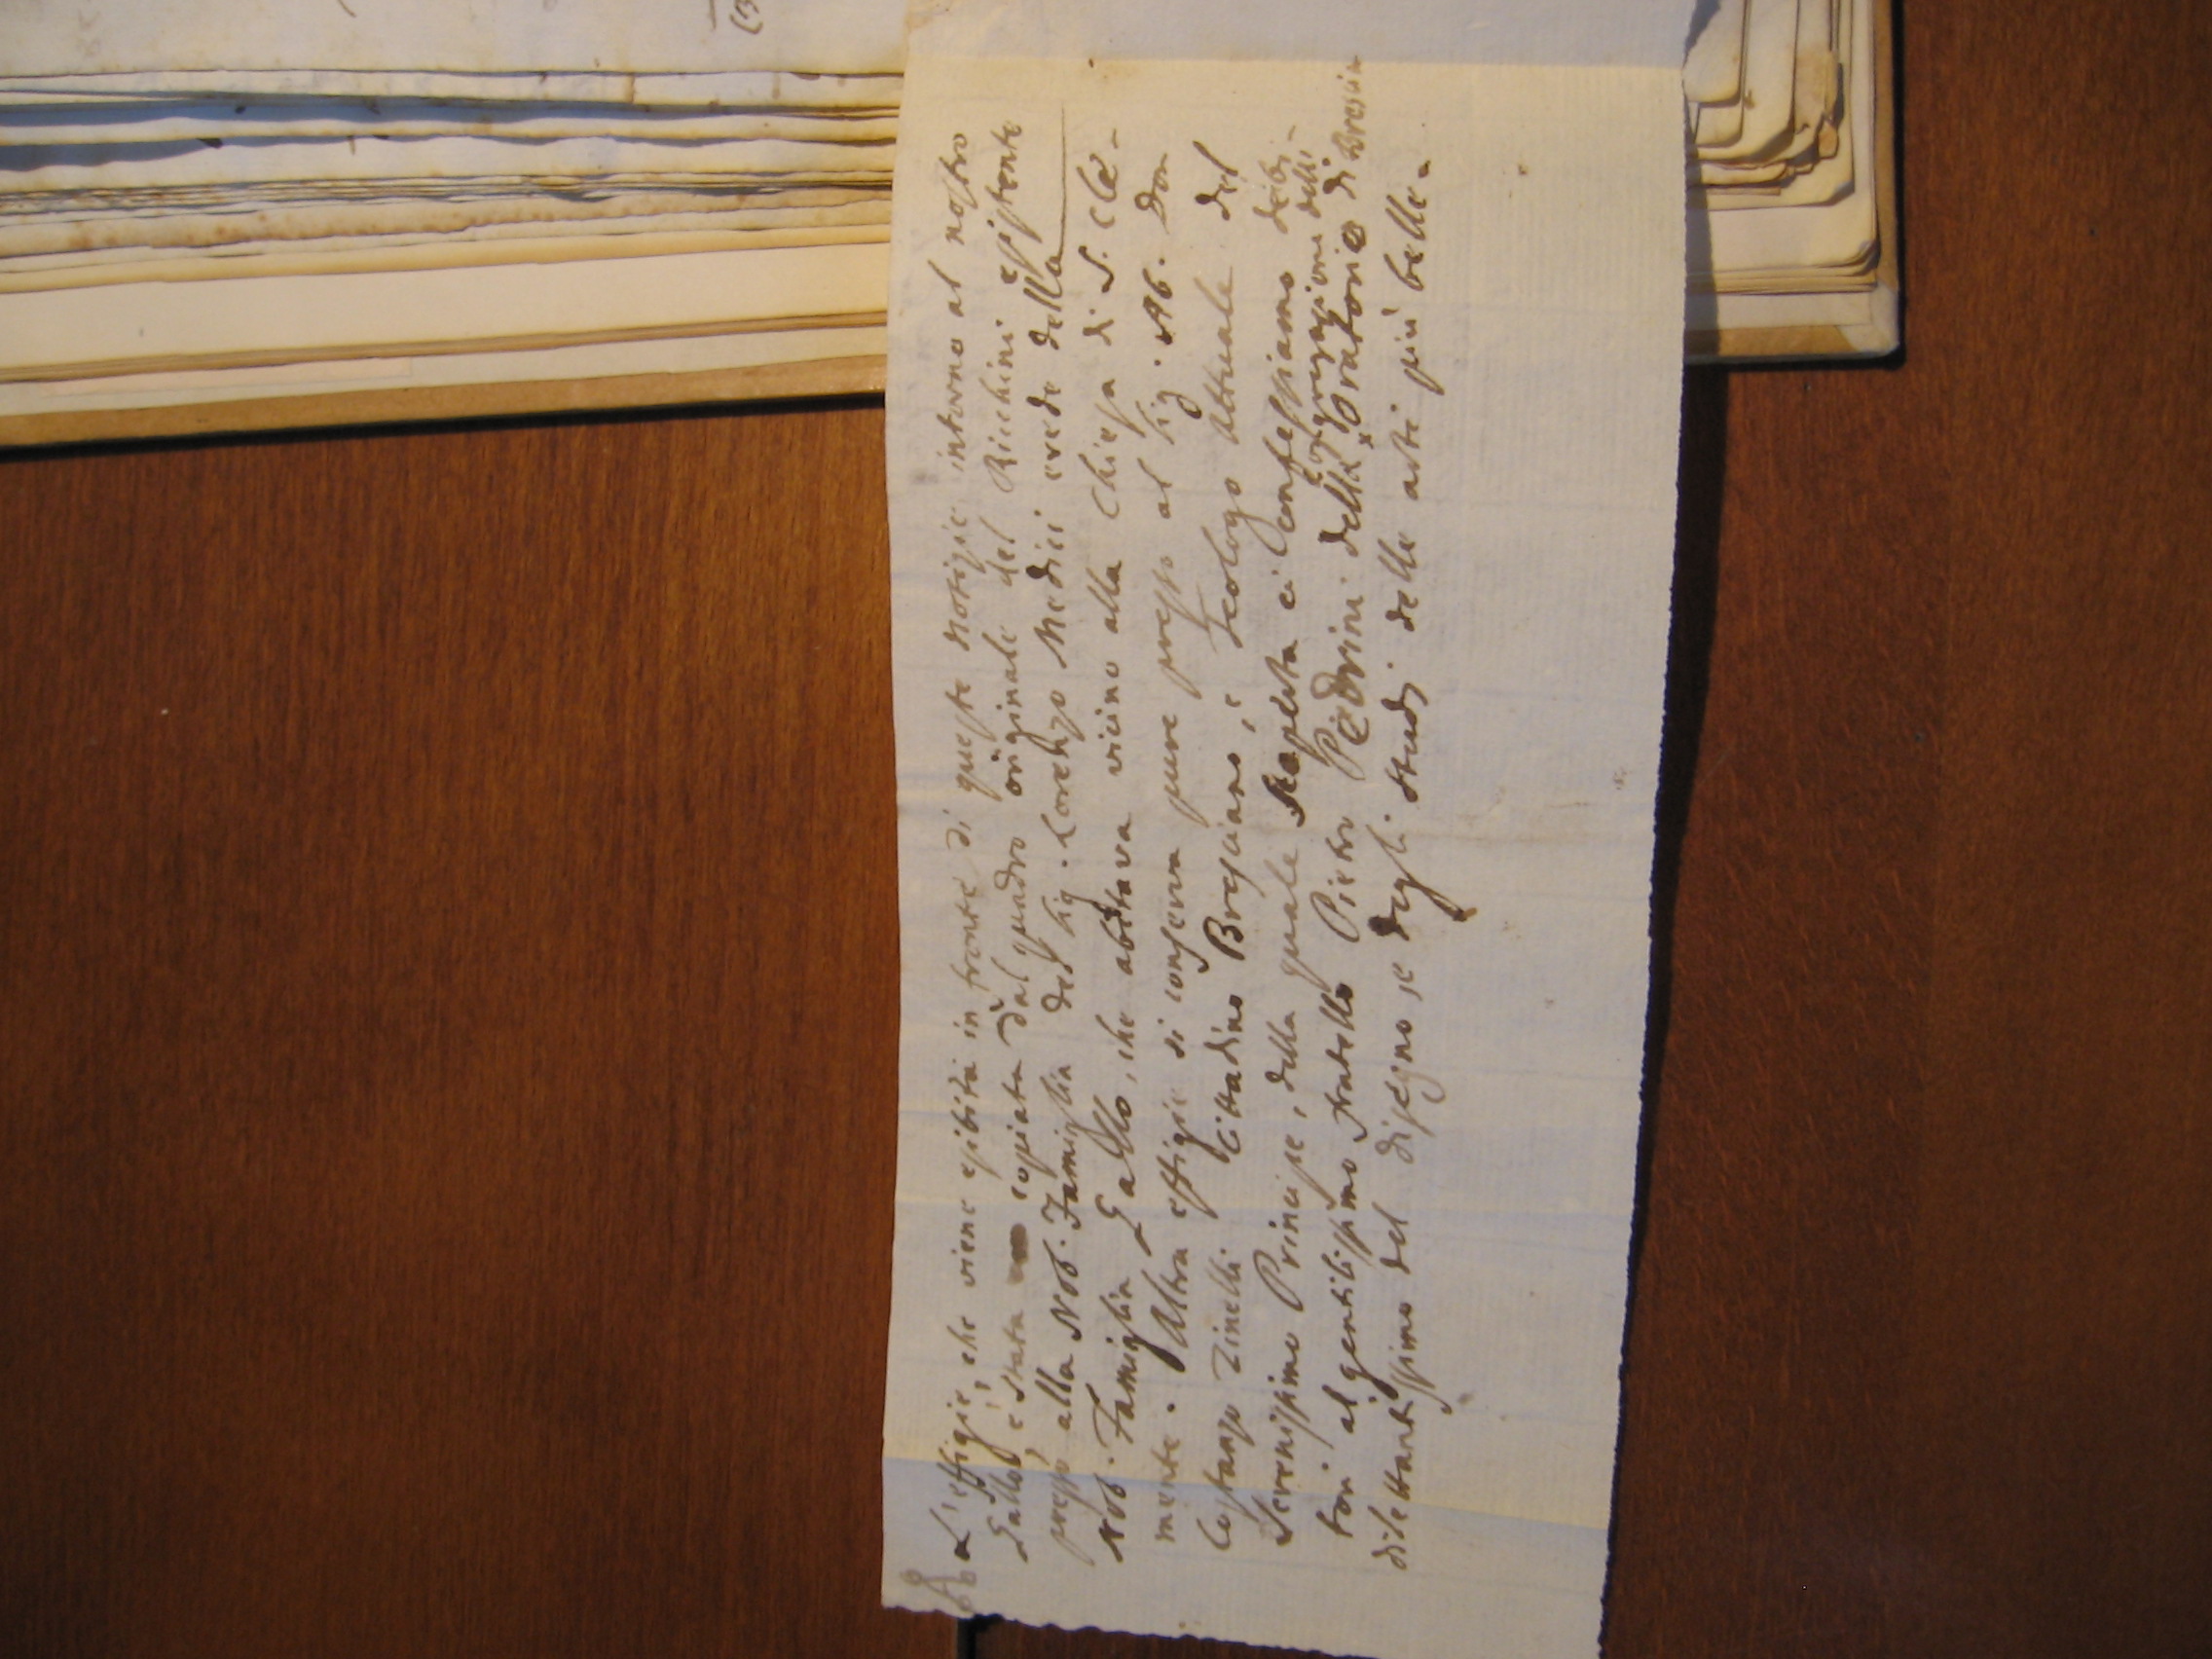 L'effigie, che viene esibita in fronte di queste Notizie intorno al nostro
Gallo, è stata copiata dal quadro originale del Ricchini esistente
presso alla Nob. Famiglia del Sig. Lorenzo Medici erede della
Nob. Famiglia Gallo, che abitava vicino alla Chiesa di S. Cle-
mente. Altra effigie si conserva pure presso al Sig. Ab. Don
Costanzo Zinelli Cittadino Bresciano, e Teologo attuale del
Serenissimo Principe, della quale ci confessiamo debi-
tori al gentilissimo fratello Pietro Pedrini della Congregazione dell'
Oratorio di Brescia
dilettantissimo del disegno, e degli studj delle arti più belle.